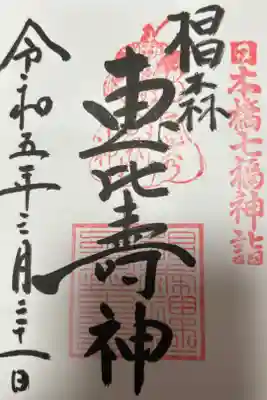 日本橋七福神詣
椙森
恵比寿神
令和五年三月二十一日